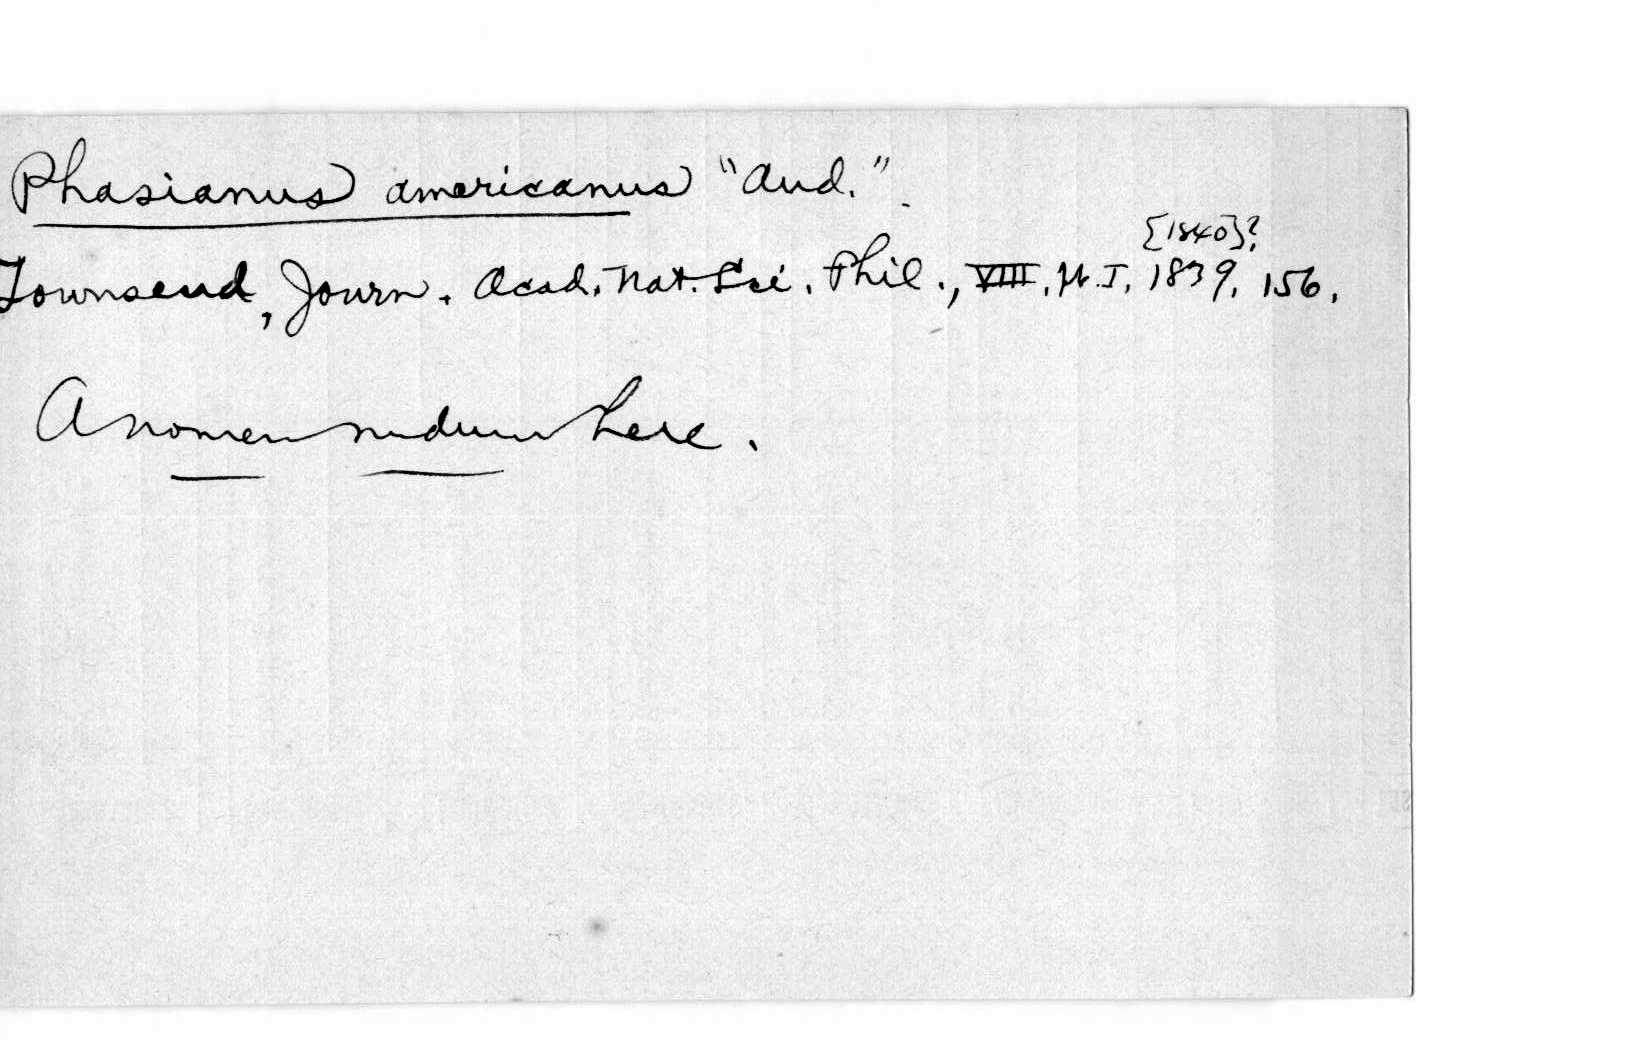 Phasianus americanus "Aud."
[1840]?
Townsend, Journ. Acad. Nat. Sci. Phil., VIII, pt. I, 1839, 156.
A nomen nudum here.